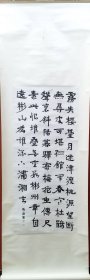 霧失樓臺月迷津渡桃源望斷
無尋處可堪孤館閉春寒杜鵑
聲裏斜陽暮驛寄梅花魚傳尺
素砌成此恨無重數郴江幸自
遶郴山為誰流下瀟湘去